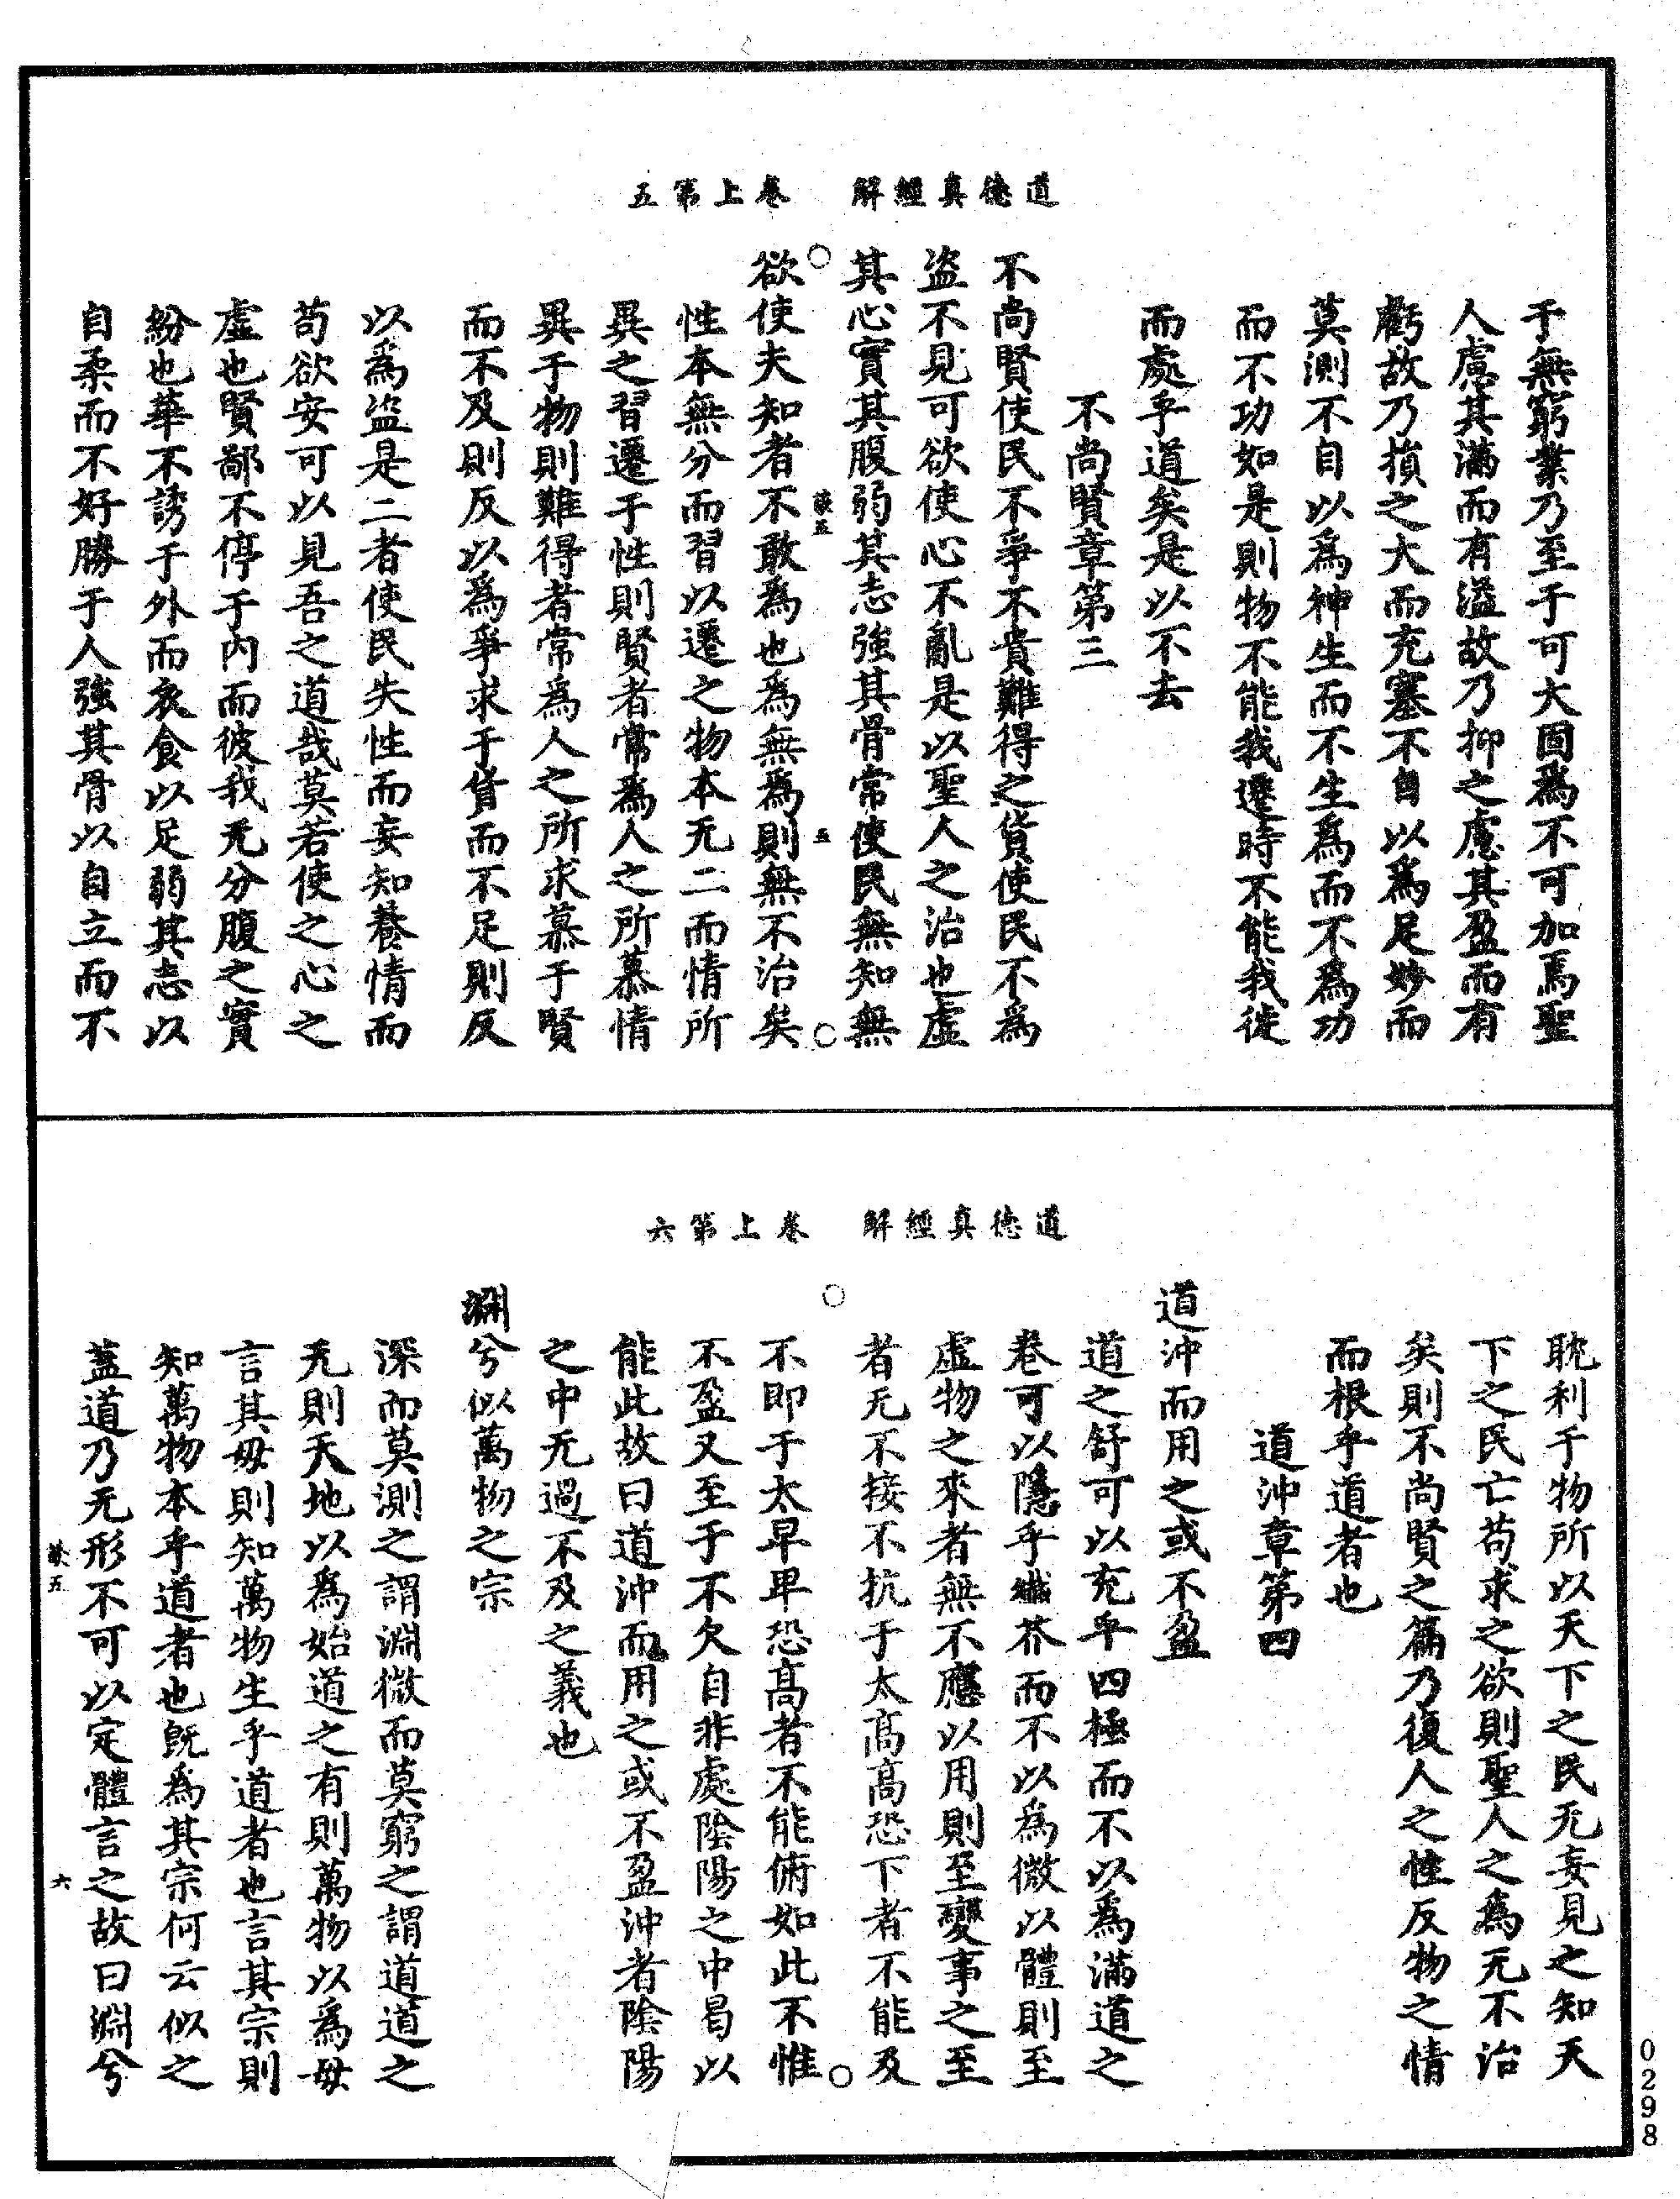 道德真經解　卷上第五
于無窮業乃至于可大固為不可加焉聖
人慮其滿而有溢故乃抑之慮其盈而有
虧故乃損之大而充塞不自以為足妙而
莫測不自以為神生而不生為而不為功
而不功如是則物不能我遷時不能我徙
而處乎道矣是以不去
不尚賢章第三
不尚賢使民不爭不貴難得之貨使民不為
盜不見可欲使心不亂是以聖人之治也虛
其心實其腹弱其志強其骨常使民無知無
五
欲使夫知者不敢為也為無為則無不治矣
性本無分而習以遷之物本无二而情所
異之習遷于性則賢者常為人之所慕情
異于物則難得者常為人之所求慕于賢
而不及則反以為爭求于貨而不足則反
以為盜是二者使民失性而妄知養情而
苟欲安可以見吾之道哉莫若使之心之
虛也賢鄙不停于內而彼我无分腹之實
紛也華不誘于外而衣食以足弱其志以
自柔而不好勝于人強其骨以自立而不
道德真經解　卷上第六
耽利于物所以天下之民无妄見之知天
下之民亡苟求之欲則聖人之為无不治
矣則不尚賢之篇乃復人之性反物之情
而根乎道者也
道沖章第四
道沖而用之或不盈
道之舒可以充乎四極而不以為滿道之
卷可以隱乎纖芥而不以為微以體則至
虛物之來者無不應以用則至變事之至
者无不接不抗于太高高恐下者不能及
不即于太早早恐高者不能俯如此不惟
不盈又至于不欠自非處陰陽之中曷以
能此故曰道沖而用之或不盈沖者陰陽
之中无過不及之義也
淵兮似萬物之宗
深而莫測之謂淵微而莫窮之謂道道之
无則天地以為始道之有則萬物以為母
言其母則知萬物生乎道者也言其宗則
知萬物本乎道者也既為其宗何云似之
蓋道乃无形不可以定體言之故曰淵兮
六
0298